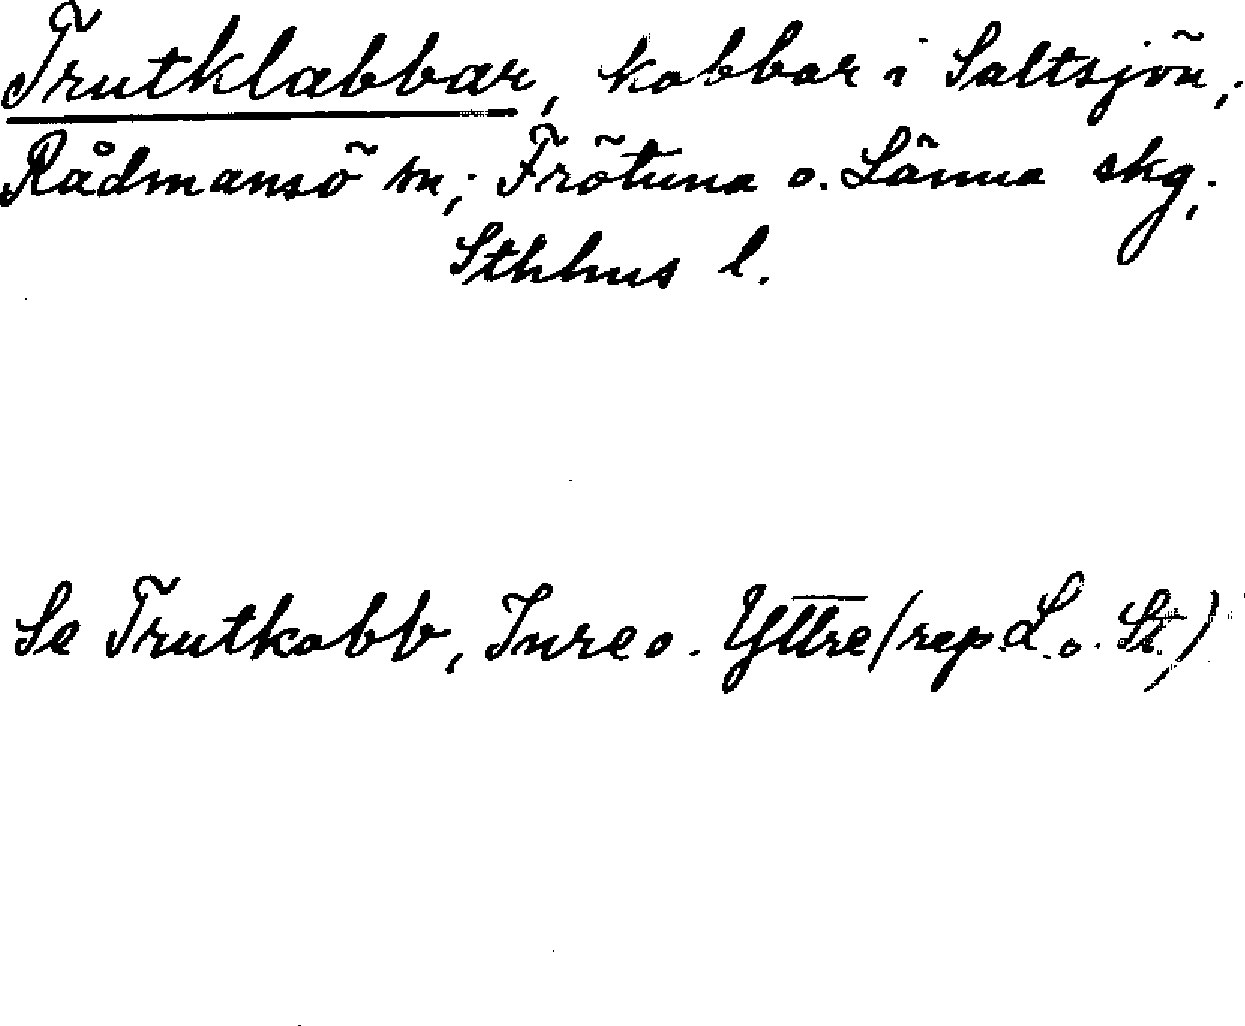 Trutklabbar, kobbar i Saltsjön;
Rådmansö sn; Frötuna o. Länna skg;
Sthlms l.
Se Trutkobb, Inre o. Yttre (rep L. o. St.)